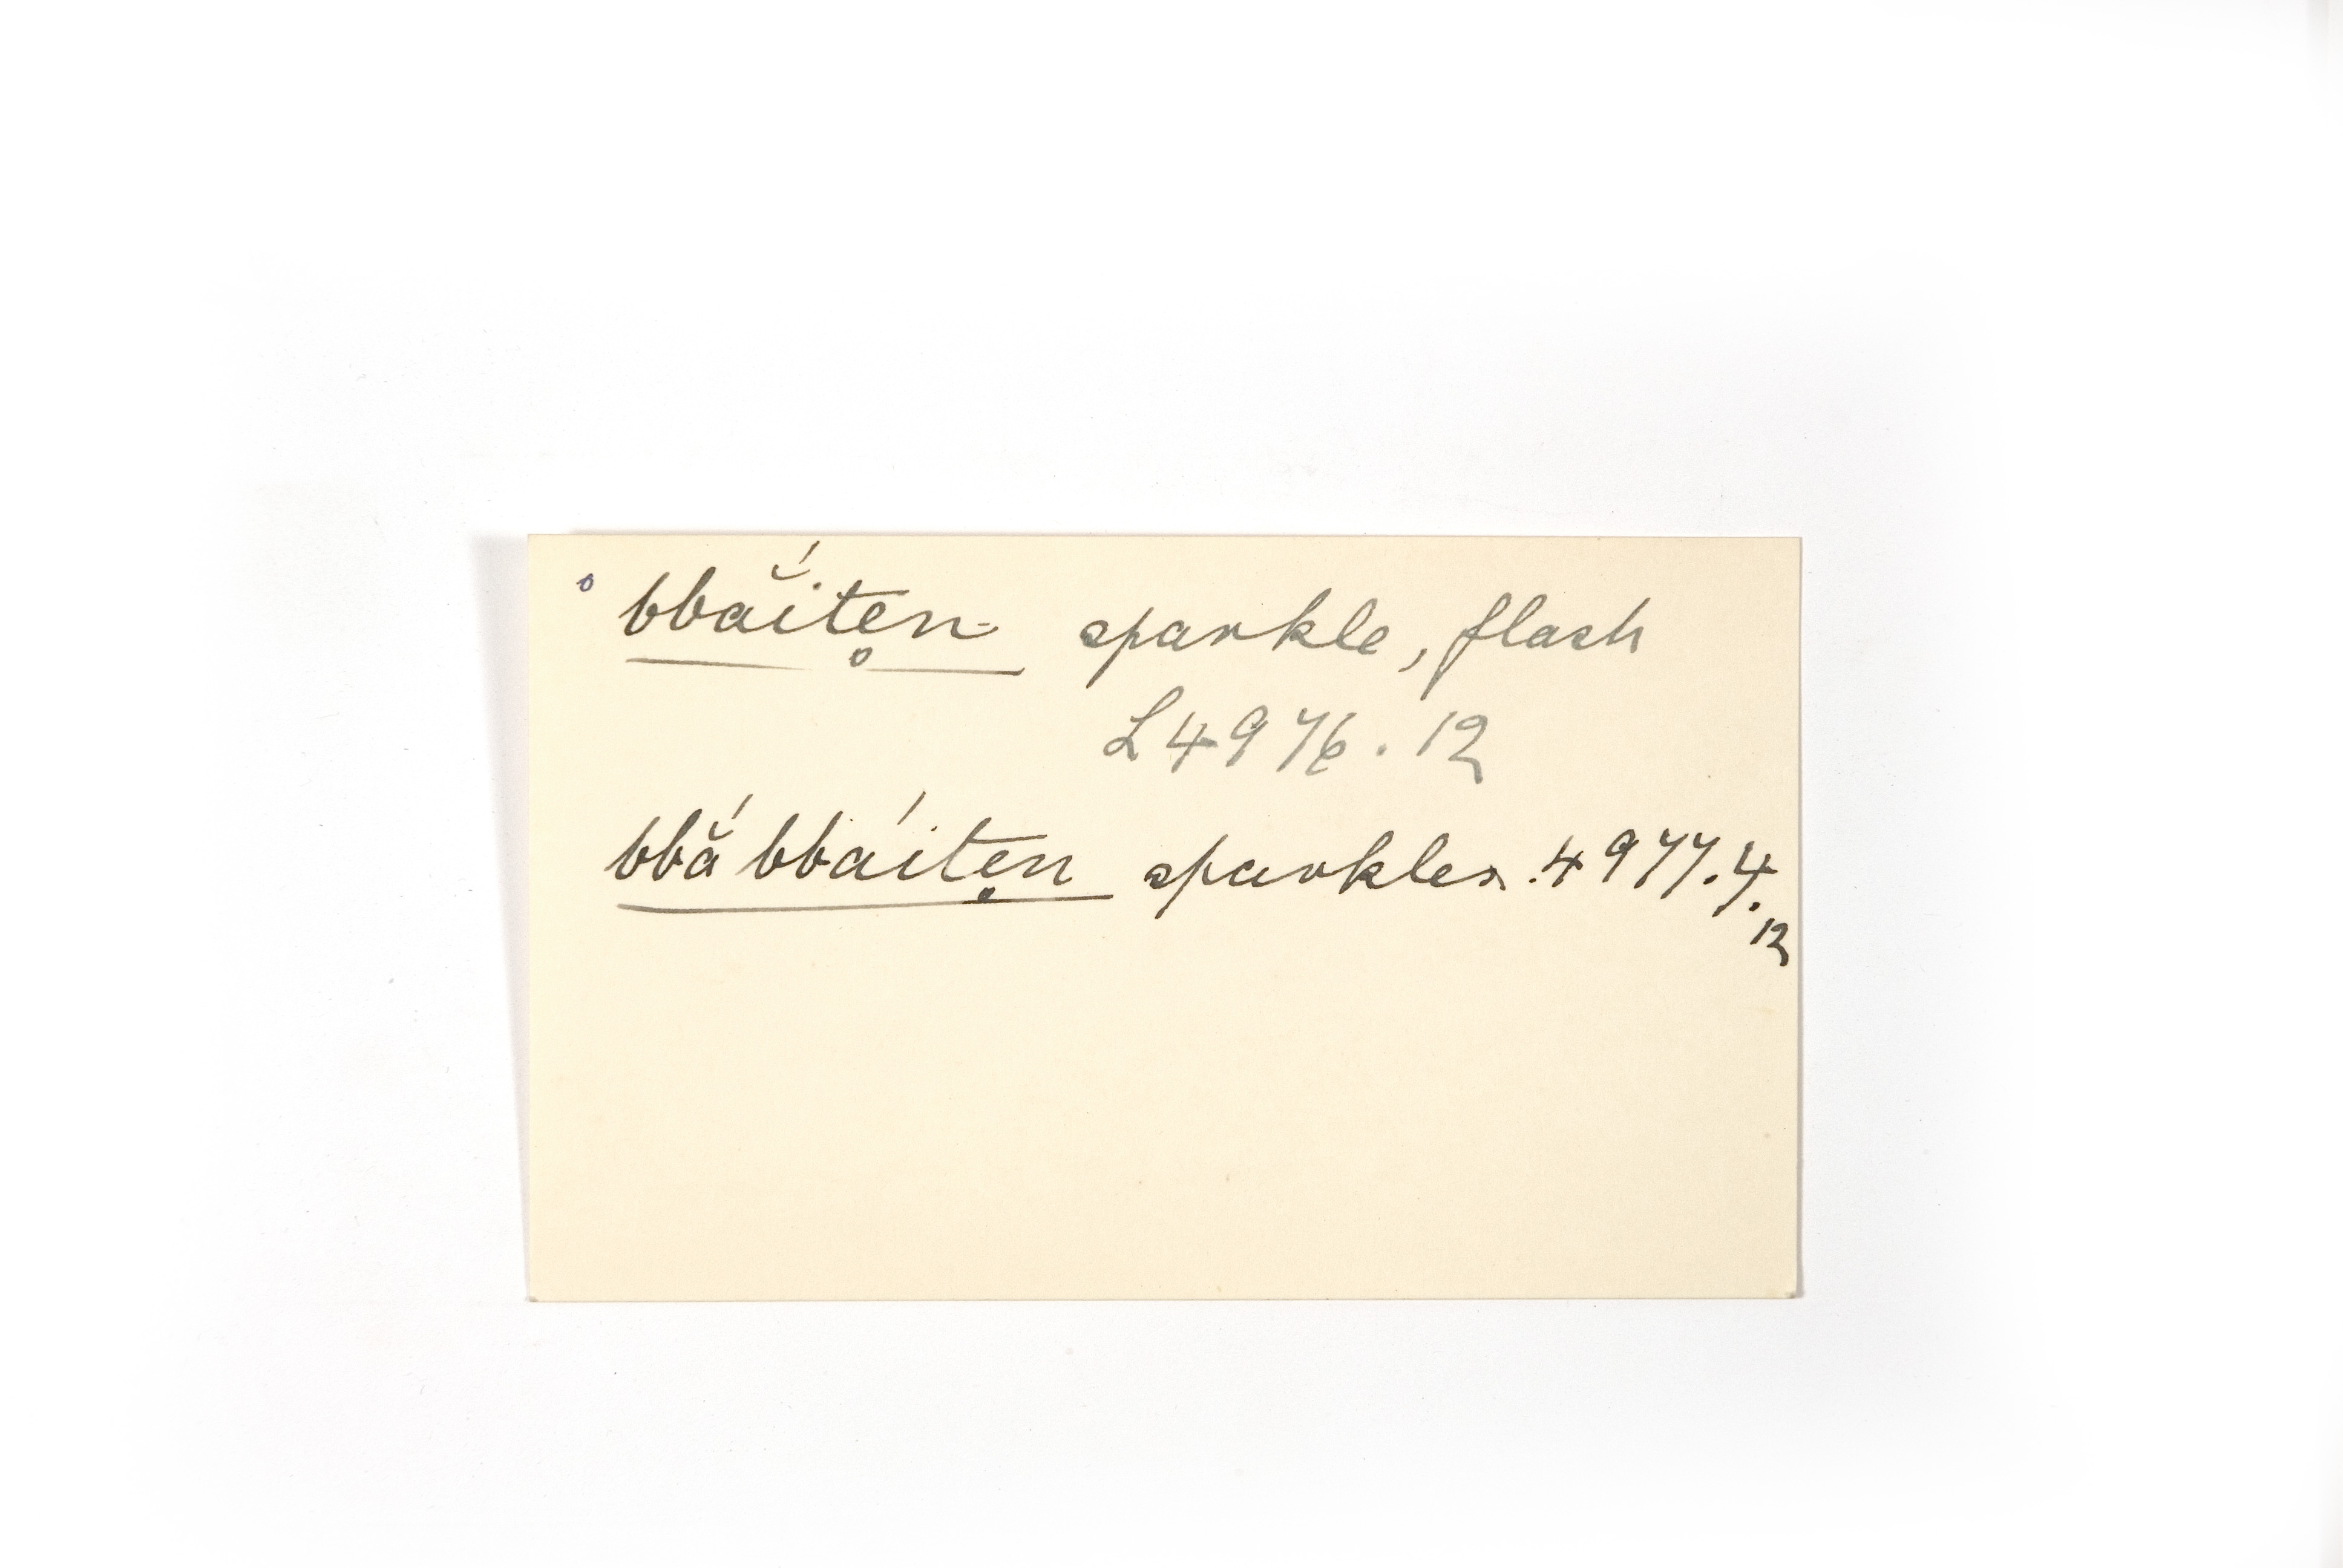 ° bbắitẹn- sparkle, flash
L4976.12
bbắ bbáitẹn sparkles. 4977.4.
12